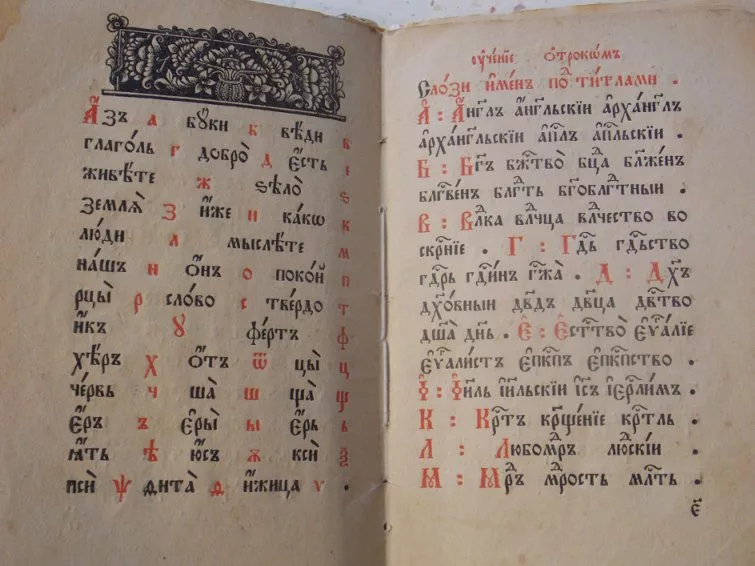 А҆́зъ а бꙋ́ки б вѣ́ди в
глаго́ль г добро̀ д є҆́сть е
живѣ́те ж ѕѣло̀ ѕ
землѧ̀ З и҆́же и ка́кѡ к
лю́ди л мыслѣ́те м
на́шъ н о҆́нъ о поко́й п
рцы̀ р сло́во с тве́рдо т
и҆́къ ꙋ фе́ртъ ф
хѣ́ръ х ѿтъ ѿ цы̀ ц
че́рвь ч ша̀ ш ща̀ щ
є҆́ръ ъ є҆ры̀ ы є҆́рь ь
ꙗ҆́ть ѣ ю҆́съ ѫ ксѝ ѯ
псѝ ѱ ѳита̀ ѳ и҆́жица ѵ .
ᲂу҆че́нїе ѻ҆трокѡ́мъ
Сло́зи и҆ме́нъ по ти́тлами .
А҆ : А҆́нг҃лъ а҆́нг҃льскїи а҆рха́нг҃лъ
а҆рха́нг҃льскїи а҆п҃лъ а҆п҃льскїи
Б : Бг҃ъ бж҃тво̀ бц҃а бл҃же́нъ
блг҃ве́нъ блг҃ть бг҃облг҃тныи
В : Влⷣка влⷣчца влⷣчество во
скрⷭ҇нїе . Г : Гдⷭ҇ь гдⷭ҇ьство
гдⷭ҇рь гдⷭ҇и́нъ гж҃а̀ . Д : Дх҃ъ
дх҃о́вныи дв҃дъ дв҃ца дв҃тво
дш҃а̀ дн҃ь . Є҆ : Є҆стⷭ҇тво̀ є҆ѵⷢ҇а́лїе
є҆ѵⷢ҇али́стъ є҆пⷭ҇кпъ є҆пⷭ҇кпство .
І҆ : І҆и҃ль і҆и҃льскїи і҆с҃ъ і҆ерⷭ҇ли́мъ .
К : Крⷭ҇тъ кр҃ще́нїе крⷭ҇тль
Л : Любомⷣръ людⷭ҇кі́и
М : Мⷣръ мⷣрость млⷭ҇ть .
є҃